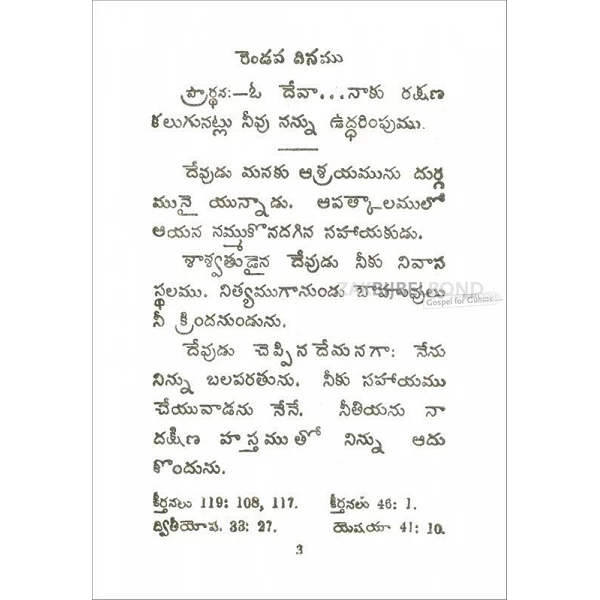 రెండవ దినము
ప్రార్థన:—ఓ దేవా...నాకు రక్షణ
కలుగునట్లు నీవు నన్ను ఉద్ధరింపుము.
దేవుడు మనకు ఆశ్రయమును దుర్గ
మునై యున్నాడు. ఆపత్కాలములో
ఆయన నమ్ముకొనదగిన సహాయకుడు.
శాశ్వతుడైన దేవుడు నీకు నివాస
స్థలము. నిత్యముగానుండు బాహువులు
నీ క్రిందనుండును.
దేవుడు చెప్పినదేమనగా: నేను
నిన్ను బలపరతును. నీకు సహాయము
చేయువాడను నేనే. నీతియను నా
దక్షిణ హస్తముతో నిన్ను ఆదు
కొందును.
కీర్తనలు 119: 108, 117. కీర్తనలు 46: 1.
ద్వితీయోప. 33: 27. యెషయా 41: 10.
3
BIJBELBOND
Gospel for Guests